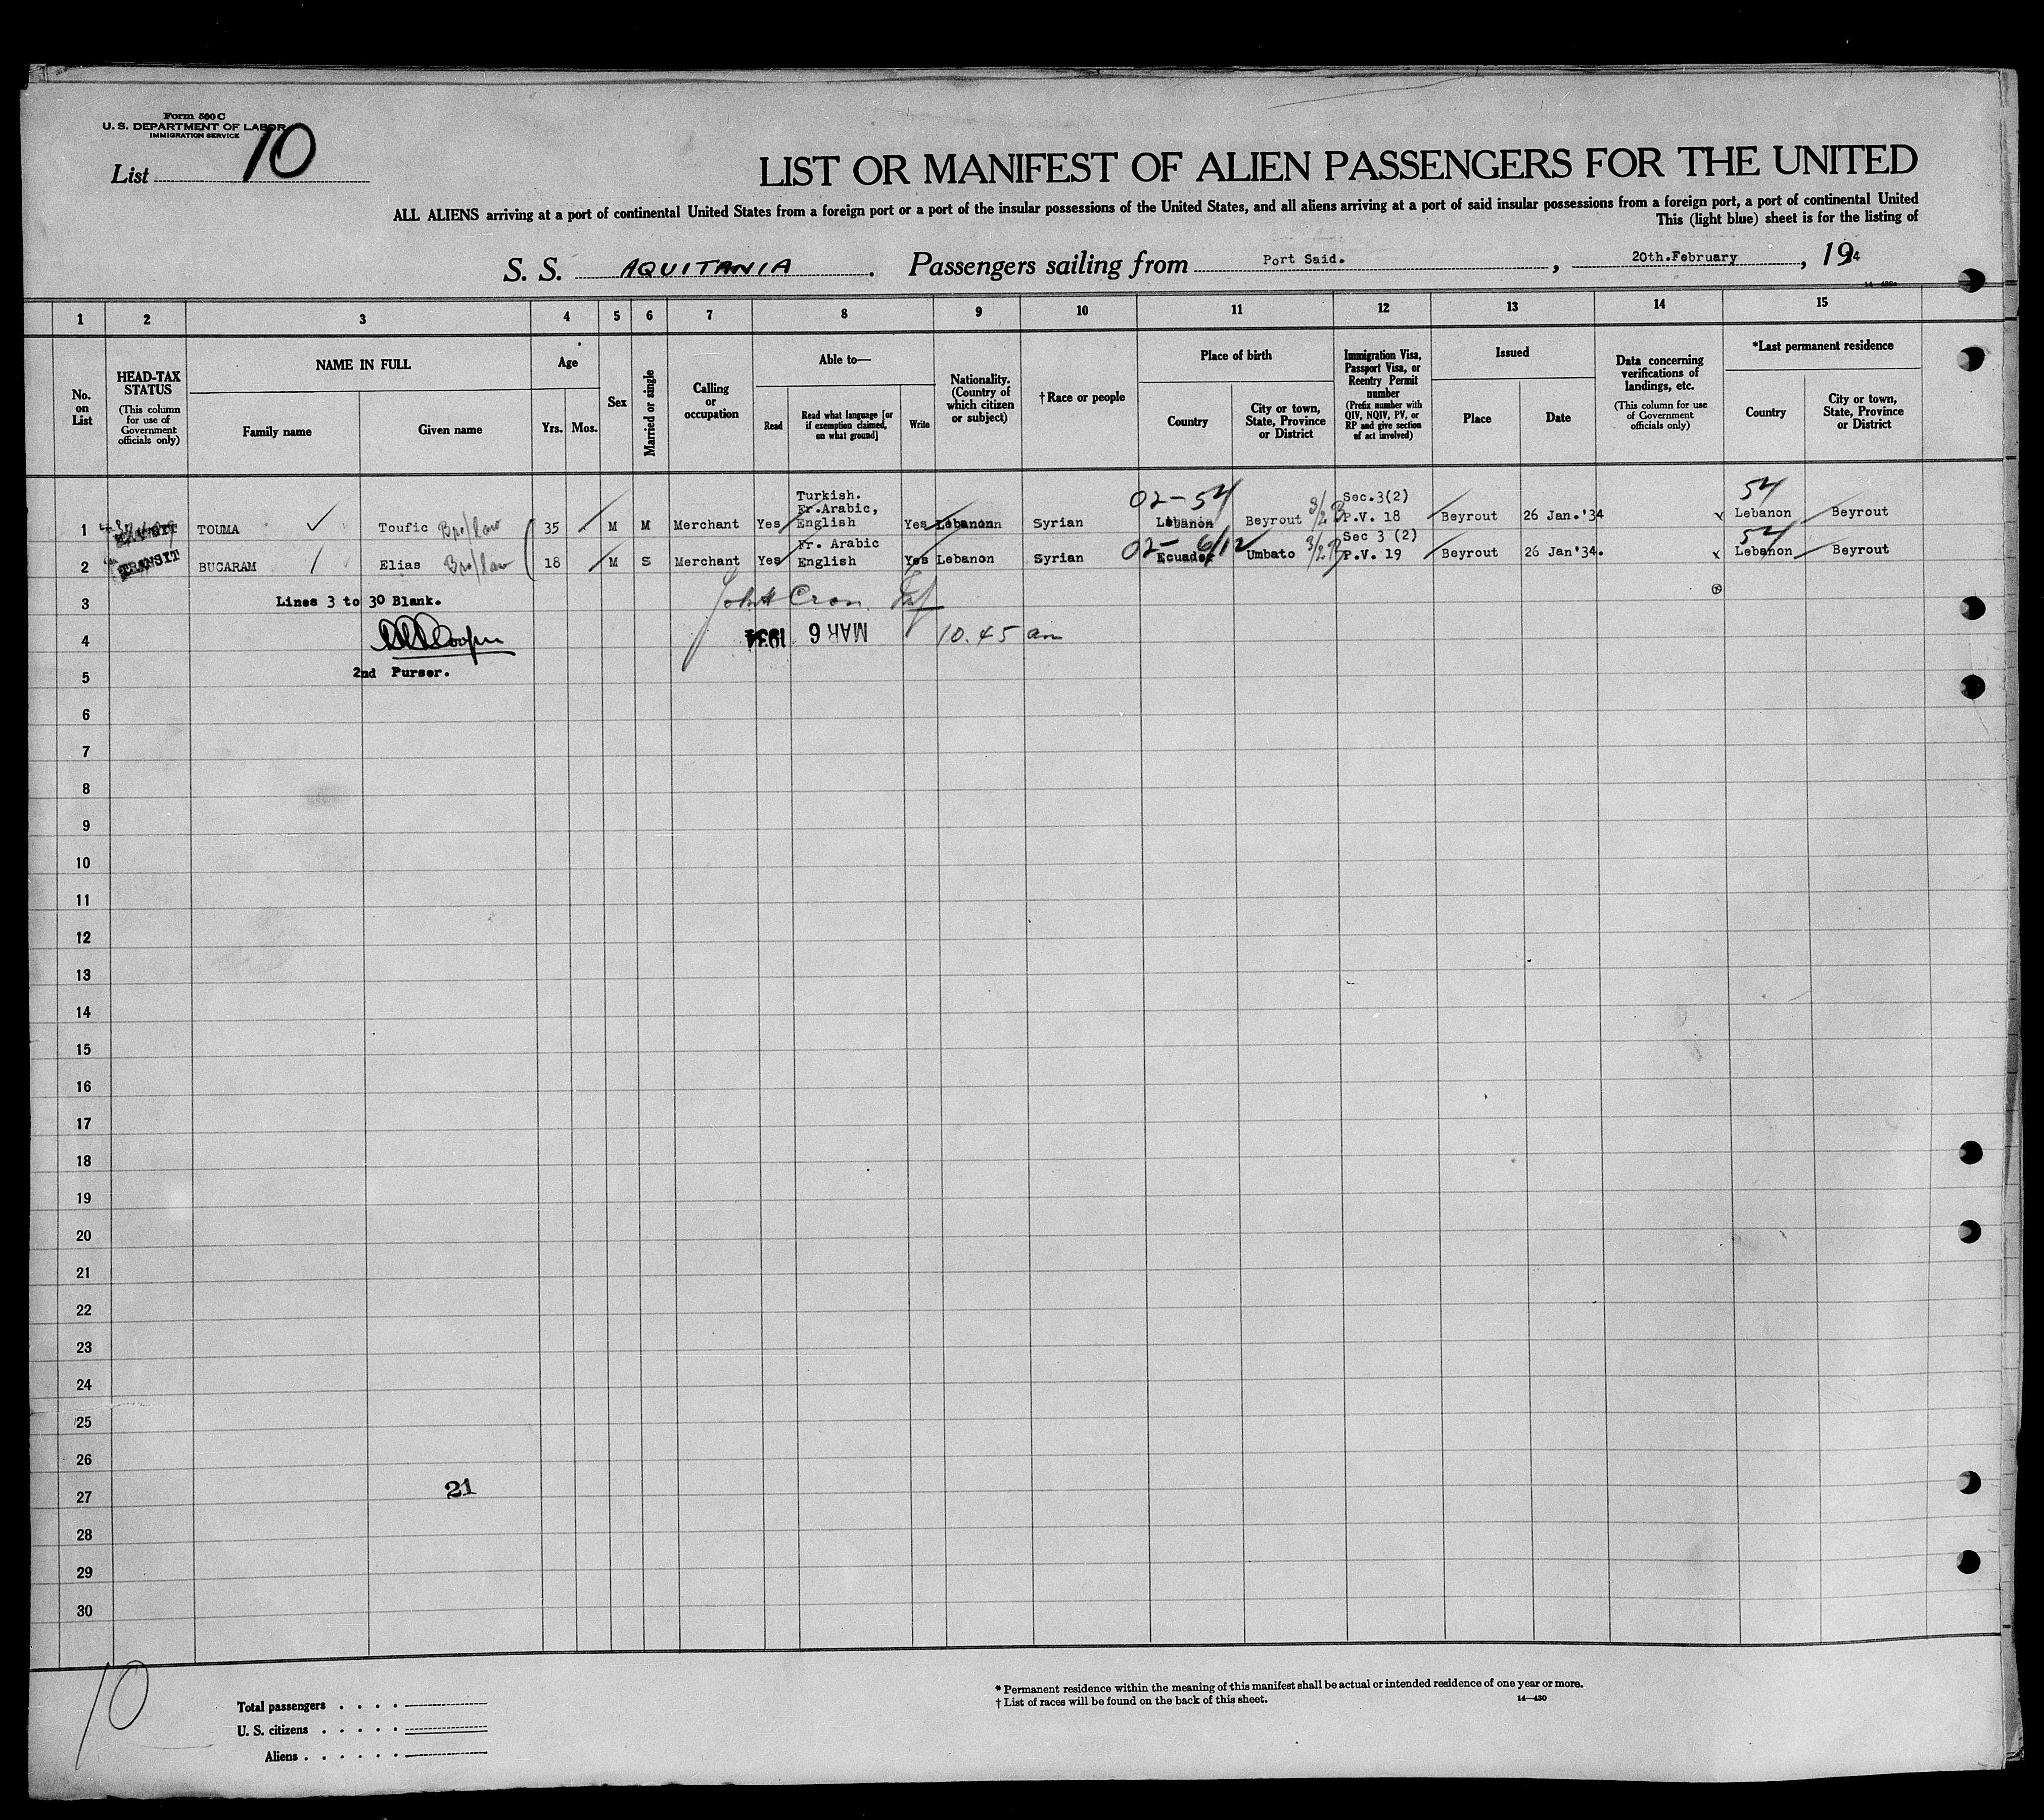 Form 500 C
U. S. DEPARTMENT OF LABOR
IMMIGRATION SERVICE
List 10
LIST OR MANIFEST OF ALIEN PASSENGERS FOR THE UNITED
ALL ALIENS arriving at a port of continental United States from a foreign port or a port of the insular possessions of the United States, and all aliens arriving at a port of said insular possessions from a foreign port, a port of continental United
This (light blue) sheet is for the listing of
S. S. AQUITANIA. Passengers sailing from Port Said. , 20th.February , 19 4
14—430a
1 2 3 4 5 6 7 8 9 10 11 12 13 14 15
No. on List
HEAD-TAX STATUS
(This column for use of Government officials only)
NAME IN FULL
Family name
Given name
Age
Yrs. Mos.
Sex
Married or single
Calling or occupation
Able to—
Read
Read what language [or if exemption claimed, on what ground]
Write
Nationality. (Country of which citizen or subject)
† Race or people
Place of birth
Country
City or town, State, Province or District
Immigration Visa, Passport Visa, or Reentry Permit number
(Prefix number with QIV, NQIV, PV, or RP and give section of act involved)
Issued
Place
Date
Data concerning verifications of landings, etc.
(This column for use of Government officials only)
*Last permanent residence
Country
City or town, State, Province or District
Turkish. 02-54 Sec.3(2) 54
Fr.Arabic,
1 TRANSIT TOUMA Toufic Bro/law 35 M M Merchant Yes English Yes Lebanon Syrian Lebanon Beyrout 3/2 B P.V. 18 Beyrout 26 Jan.'34 Lebanon Beyrout
Fr. Arabic 02- 6/12 Sec 3 (2) 54
2 TRANSIT BUCARAM Elias Bro/law 18 M S Merchant Yes English Yes Lebanon Syrian Ecuador Umbato 3/2 B P.V. 19 Beyrout 26 Jan'34. Lebanon Beyrout
3 Lines 3 to 30 Blank. John Cron
4 MAR 6 1934 10.45 am
5 2nd Purser.
6
7
8
9
10
11
12
13
14
15
16
17
18
19
20
21
22
23
24
25
26
27 21
28
29
30
10
Total passengers . . . .
U. S. citizens . . . . .
Aliens . . . . . .
* Permanent residence within the meaning of this manifest shall be actual or intended residence of one year or more.
† List of races will be found on the back of this sheet. 14—430